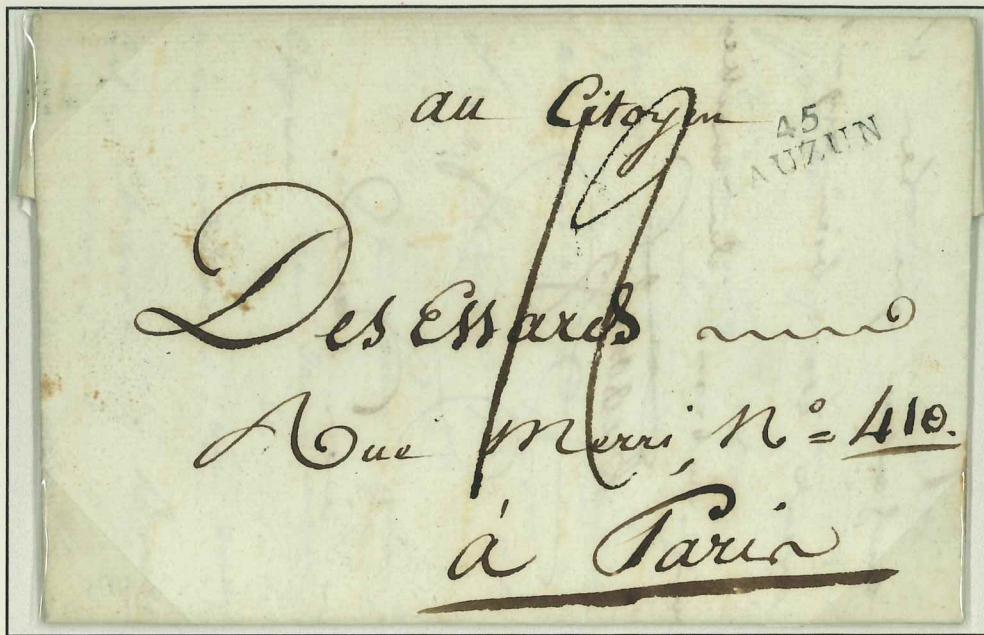 au Citoyen
45
LAUZUN
Des Essards
Rue Merri, N° = 410.
à Paris